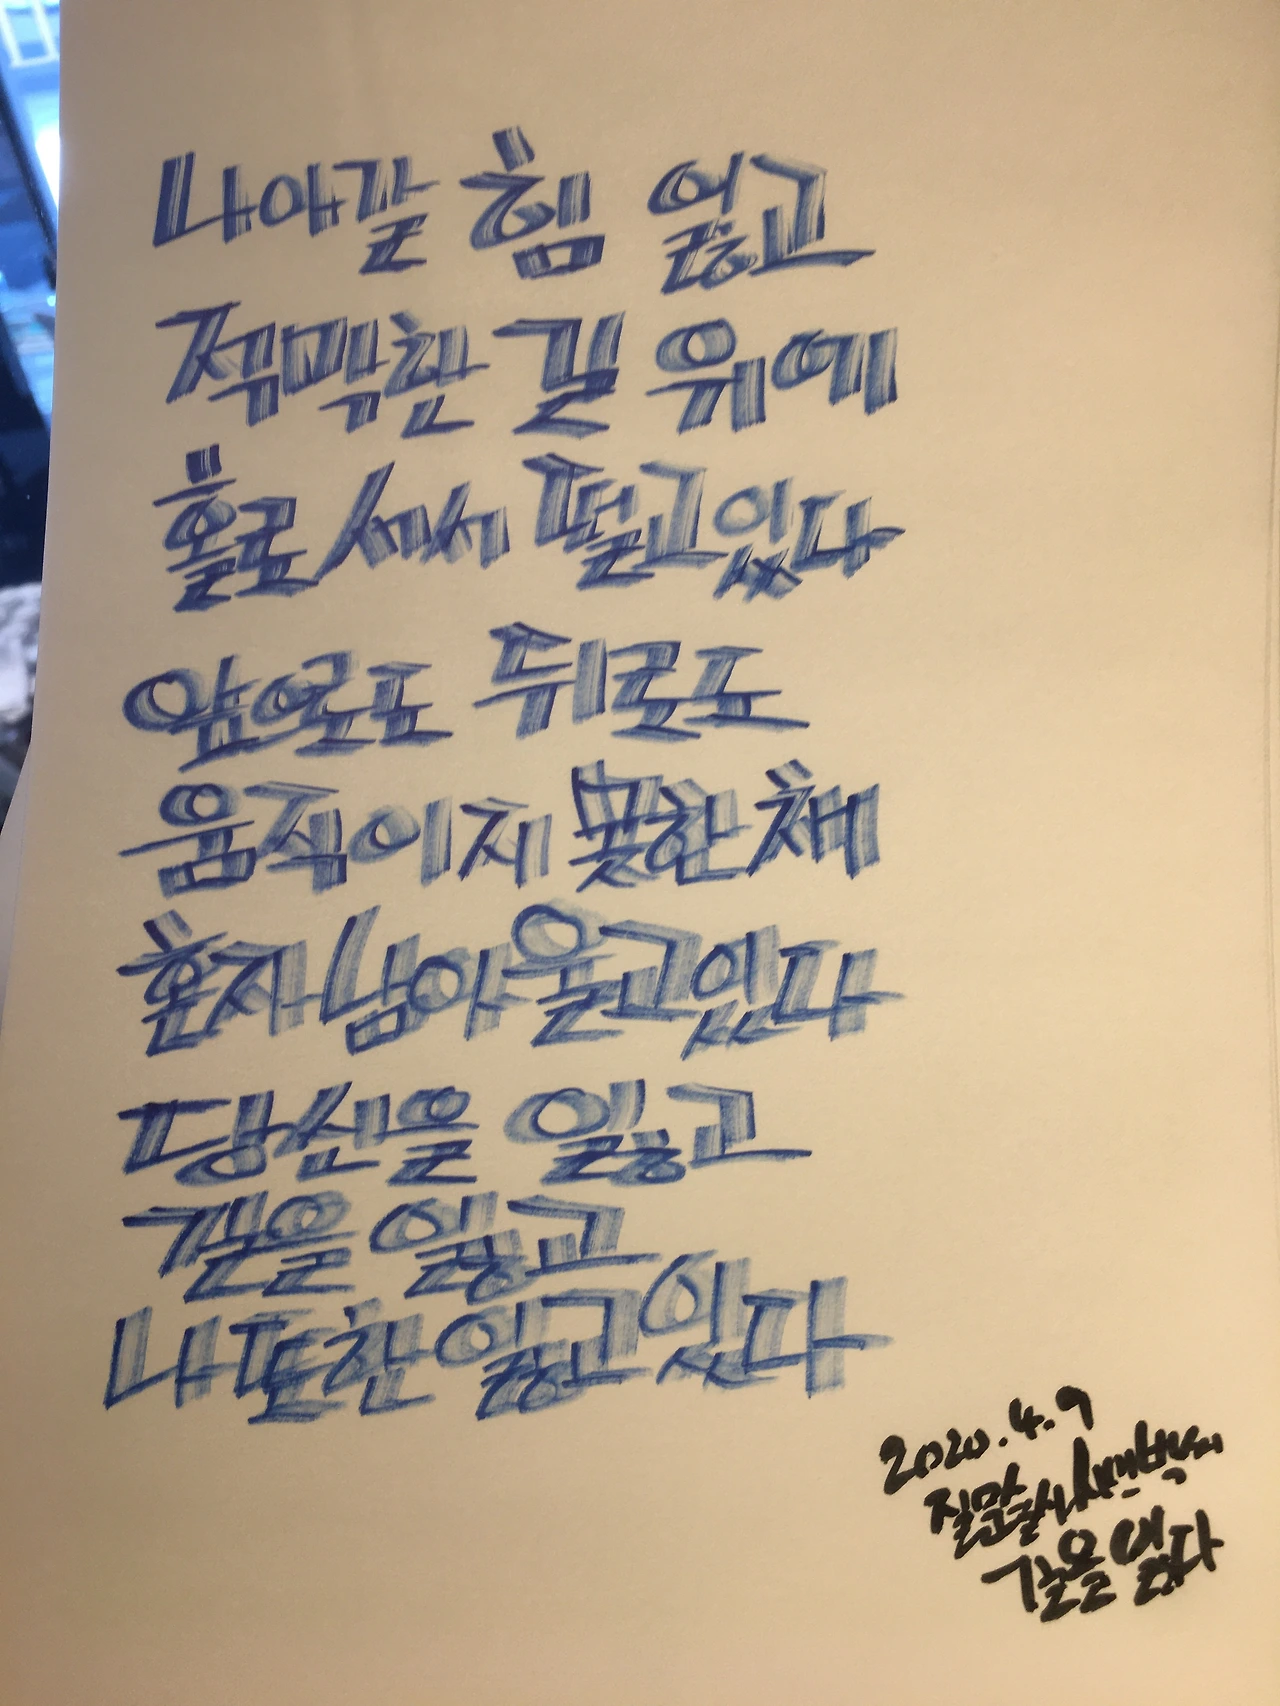 나아갈 힘 잃고
적막한 길 위에
홀로 서서 떨고있다
앞으로도 뒤로도
움직이지 못한 채
혼자 남아 울고있다
당신을 잃고
길을 잃고
나 또한 잃고있다
2020.4.9
길을 잃다